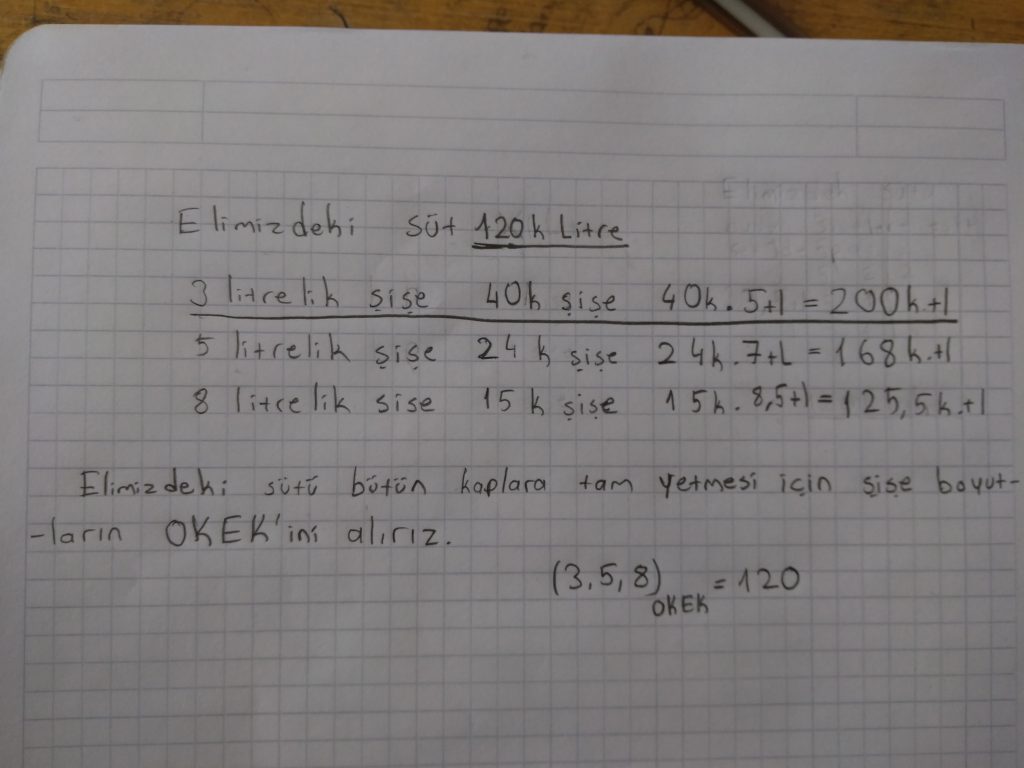 Elimizdeki süt 120k Litre
3 litrelik şişe 40k şişe 40k. 5tl = 200k.tl
5 litrelik şişe 24 k şişe 24k. 7tL = 168k.tl
8 litrelik sise 15 k şişe 15k. 8,5tl = 125,5k.tl
Elimizdeki sütü bütün kaplara tam yetmesi için şişe boyut-
-ların OKEK'ini alırız.
(3,5,8)OKEK = 120